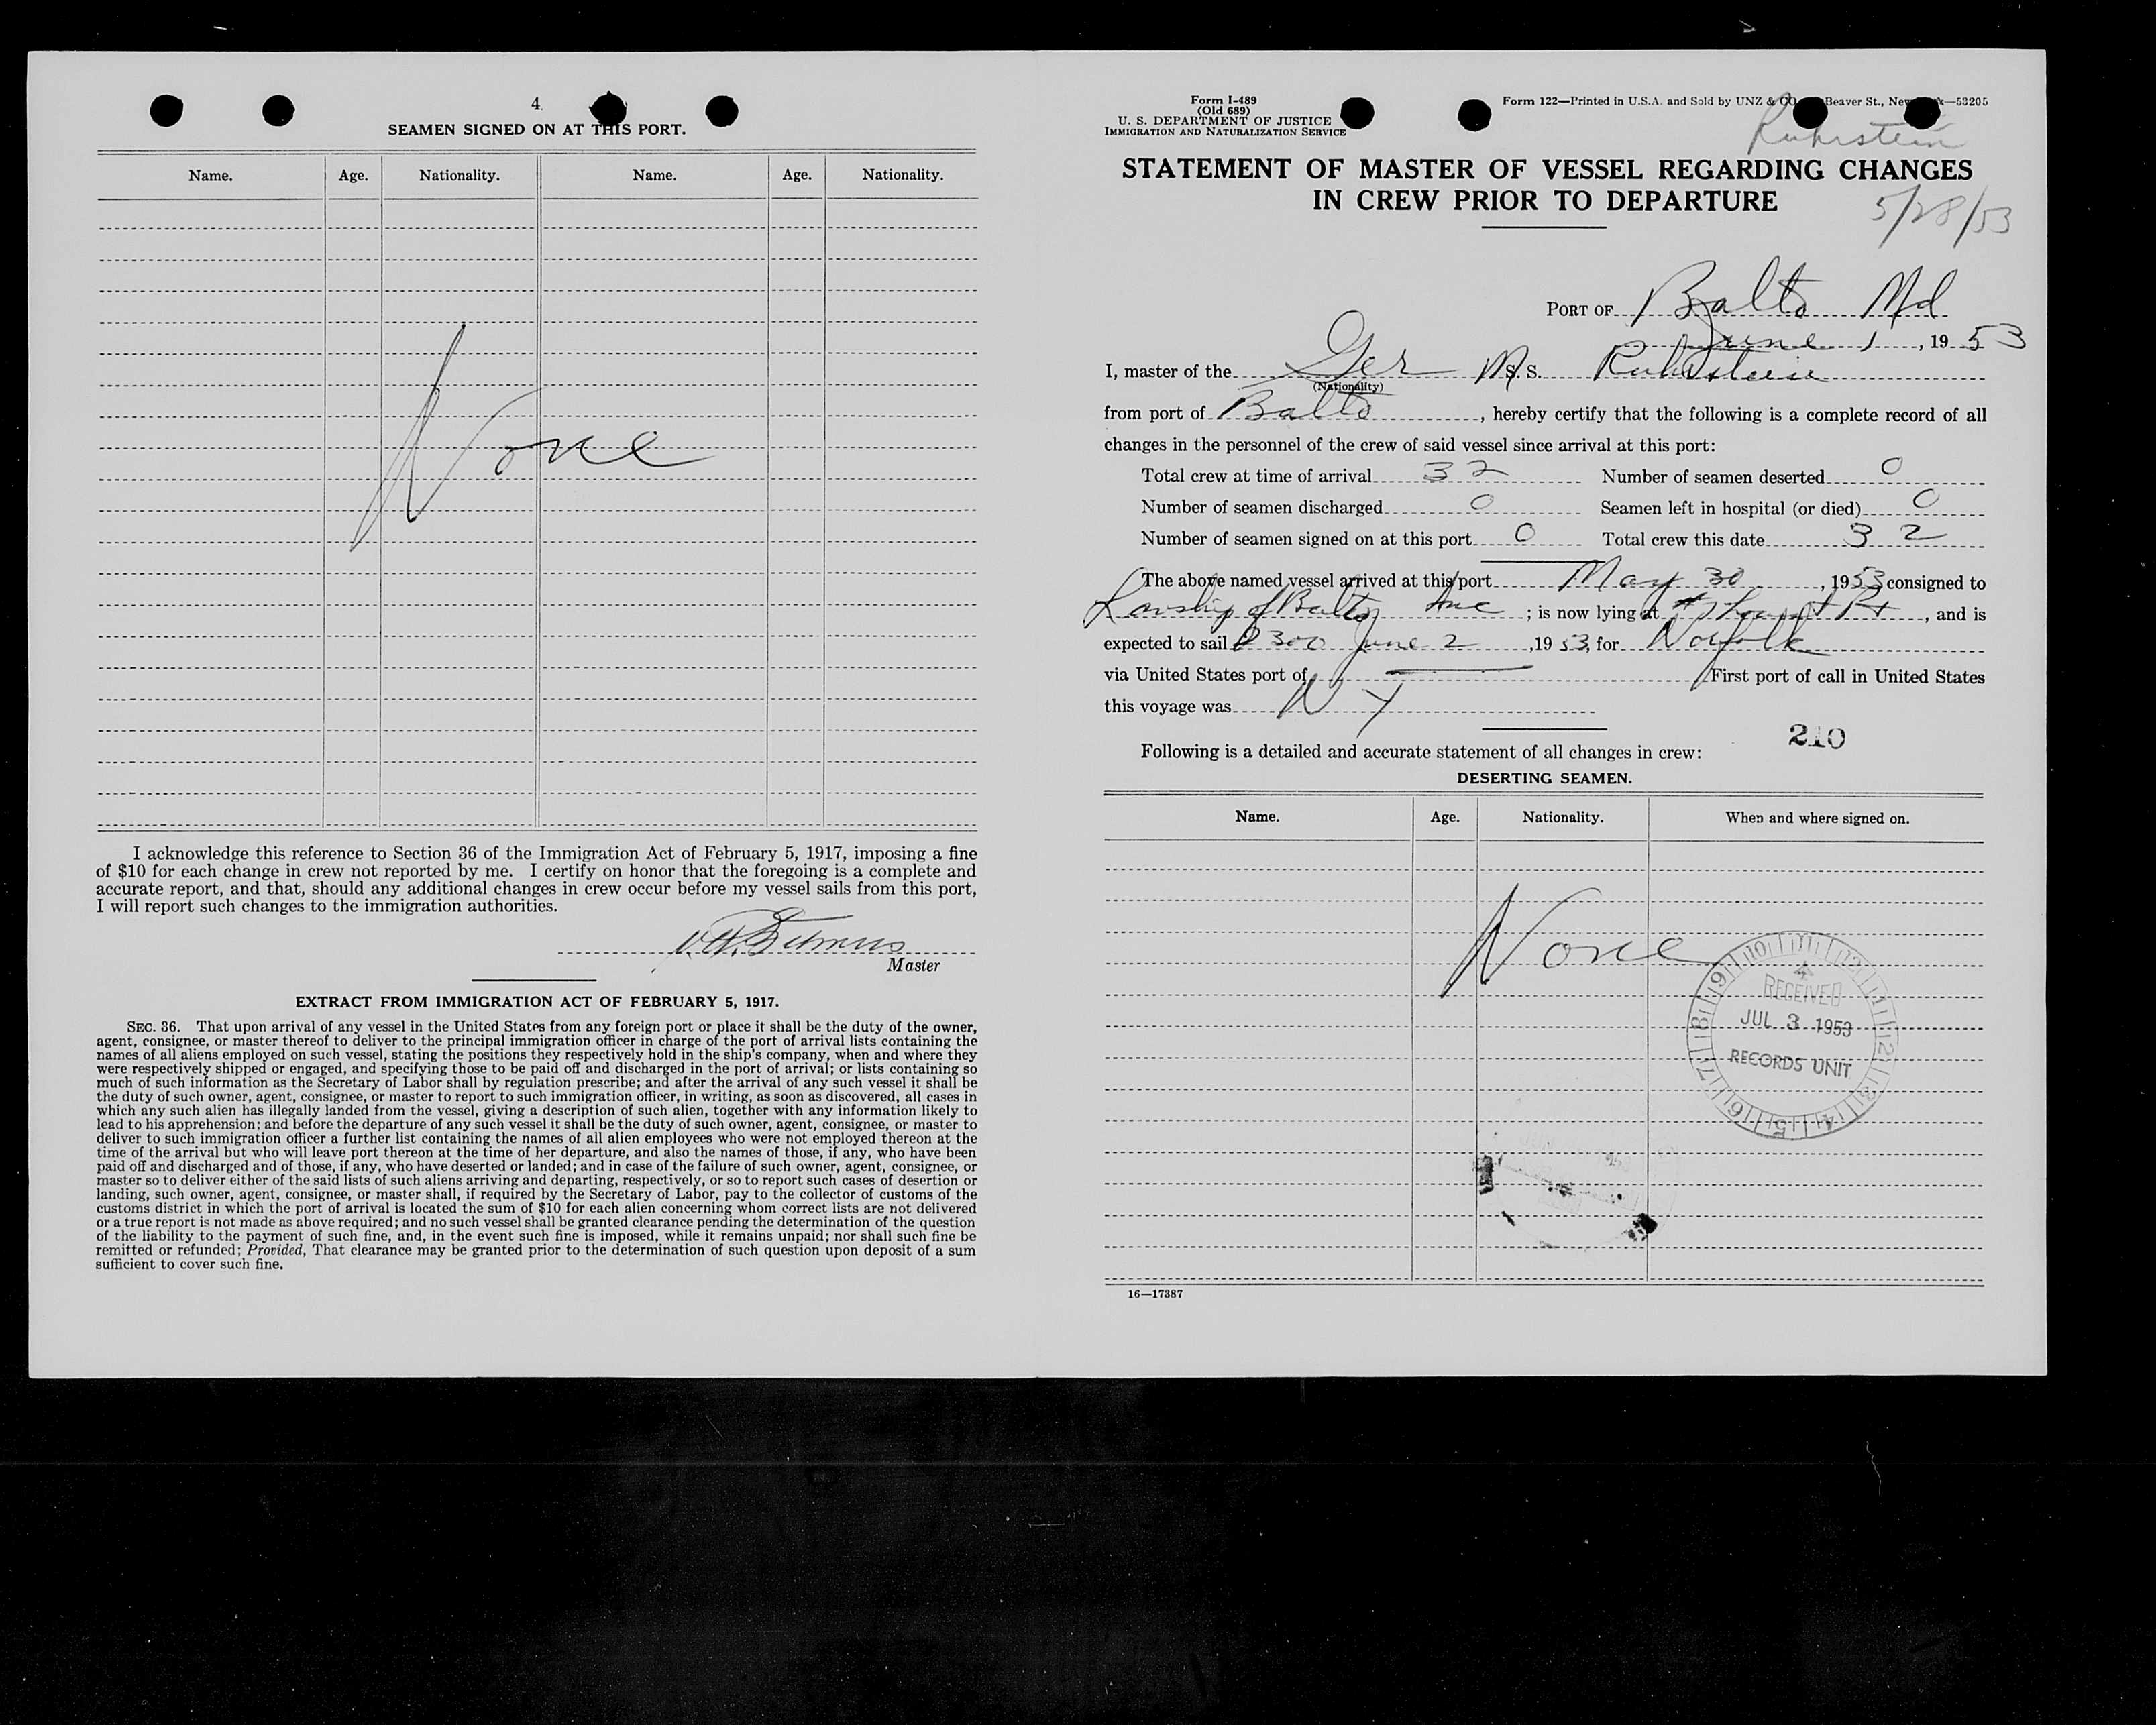 4.
SEAMEN SIGNED ON AT THIS PORT.
Name. Age. Nationality. Name. Age. Nationality.
None
I acknowledge this reference to Section 36 of the Immigration Act of February 5, 1917, imposing a fine
of $10 for each change in crew not reported by me. I certify on honor that the foregoing is a complete and
accurate report, and that, should any additional changes in crew occur before my vessel sails from this port,
I will report such changes to the immigration authorities.
Master
EXTRACT FROM IMMIGRATION ACT OF FEBRUARY 5, 1917.
SEC. 36. That upon arrival of any vessel in the United States from any foreign port or place it shall be the duty of the owner,
agent, consignee, or master thereof to deliver to the principal immigration officer in charge of the port of arrival lists containing the
names of all aliens employed on such vessel, stating the positions they respectively hold in the ship's company, when and where they
were respectively shipped or engaged, and specifying those to be paid off and discharged in the port of arrival; or lists containing so
much of such information as the Secretary of Labor shall by regulation prescribe; and after the arrival of any such vessel it shall be
the duty of such owner, agent, consignee, or master to report to such immigration officer, in writing, as soon as discovered, all cases in
which any such alien has illegally landed from the vessel, giving a description of such alien, together with any information likely to
lead to his apprehension; and before the departure of any such vessel it shall be the duty of such owner, agent, consignee, or master to
deliver to such immigration officer a further list containing the names of all alien employees who were not employed thereon at the
time of the arrival but who will leave port thereon at the time of her departure, and also the names of those, if any, who have been
paid off and discharged and of those, if any, who have deserted or landed; and in case of the failure of such owner, agent, consignee, or
master so to deliver either of the said lists of such aliens arriving and departing, respectively, or so to report such cases of desertion or
landing, such owner, agent, consignee, or master shall, if required by the Secretary of Labor, pay to the collector of customs of the
customs district in which the port of arrival is located the sum of $10 for each alien concerning whom correct lists are not delivered
or a true report is not made as above required; and no such vessel shall be granted clearance pending the determination of the question
of the liability to the payment of such fine, and, in the event such fine is imposed, while it remains unpaid; nor shall such fine be
remitted or refunded; Provided, That clearance may be granted prior to the determination of such question upon deposit of a sum
sufficient to cover such fine.
Form I-489
(Old 689)
U. S. DEPARTMENT OF JUSTICE
IMMIGRATION AND NATURALIZATION SERVICE
Form 122—Printed in U.S.A. and Sold by UNZ & CO. Beaver St., New —53205
Ruhrstein
STATEMENT OF MASTER OF VESSEL REGARDING CHANGES
IN CREW PRIOR TO DEPARTURE
5/28/53
PORT OF Balto Md
June 1, 1953
I, master of the Ger M S. S. Ruhrstein
(Nationality)
from port of Balto, hereby certify that the following is a complete record of all
changes in the personnel of the crew of said vessel since arrival at this port:
Total crew at time of arrival 32 Number of seamen deserted 0
Number of seamen discharged 0 Seamen left in hospital (or died) 0
Number of seamen signed on at this port 0 Total crew this date 32
The above named vessel arrived at this port May 30, 1953 consigned to
of Balto Inc; is now lying at Pt, and is
expected to sail 300 June 2, 1953, for Norfolk
via United States port of — First port of call in United States
this voyage was N Y
210
Following is a detailed and accurate statement of all changes in crew:
DESERTING SEAMEN.
Name. Age. Nationality. When and where signed on.
None
10 11 12 1 2 3 4 5 6 7 8 9
RECEIVED
JUL 3 1953
RECORDS UNIT
16—17387